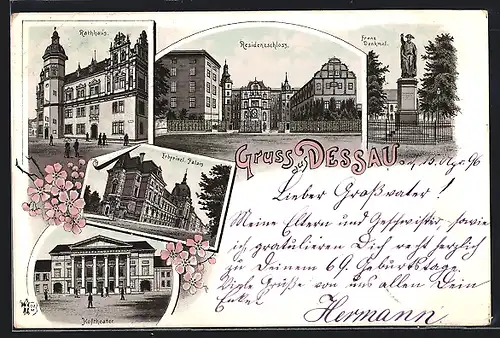 Rathhaus.
Residenzschloss.
Franz
Denkmal.
Erbprinzl. Palais
Gruss aus DESSAU
15. Apr. 96
Lieber Großvater!
Meine Eltern und Geschwister, sowie
ich gratulieren Dich recht herzlich
zu Deinem 69. Geburtstage.
Viele Grüße von uns allen Dein
Enkel
Hermann
Hoftheater